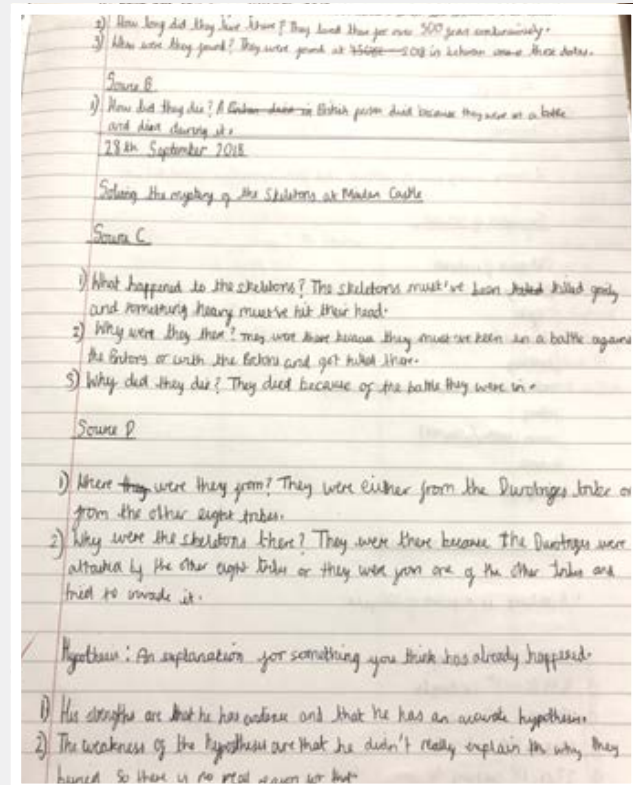 2) How long did they live there? They lived there for over 500 years continuously.
3) When were they found? They were found at in between these dates.
Source B
1) How did they die? A British person died because they were in a battle
and died during it.
28th September 2018
Solving the mystery of the Skeletons at Maiden Castle
Source C
1) What happened to the skeletons? The skeletons must've been killed
and something heavy must've hit their head.
2) Why were they there? They were there because they must've been in a battle
the or with the and got killed there.
3) Why did they die? They died because of the battle they were in.
Source D
1) Where they were they from? They were either from the Durotriges tribe or
from the other eight tribes.
2) Why were the skeletons there? They were there because the Durotriges were
attacked by the other eight tribes or they were from one of the other tribes and
tried to invade it.
Hypothesis: An explanation for something you think has already happened.
1) His strengths are that he has evidence and that he has an accurate hypothesis.
2) The weakness of the hypothesis are that he didn't really explain why they
so there is no real reason for that.